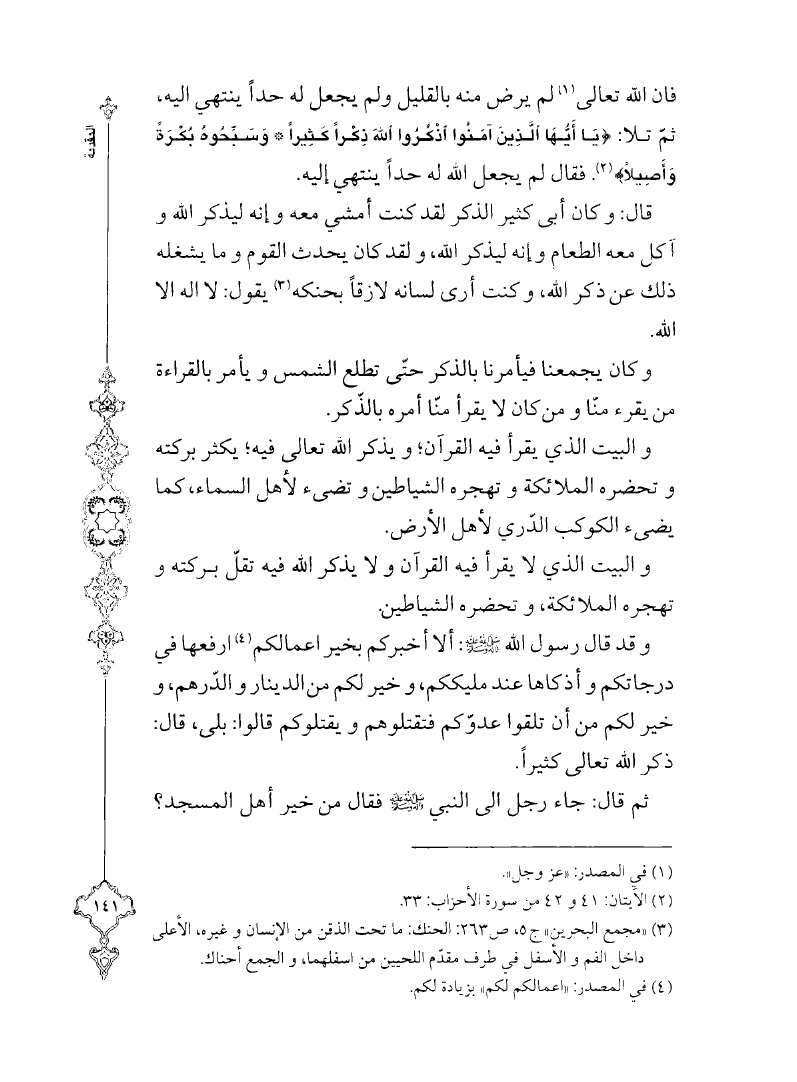 فان الله تعالى(١) لم يرض منه بالقليل ولم يجعل له حداً ينتهي اليه،
ثمّ تلا: ﴿يَا أَيُّهَا ٱلَّذِينَ آمَنُوا ٱذْكُرُوا ٱللهَ ذِكْراً كَثِيراً * وَسَبِّحُوهُ بُكْرَةً
وَأَصِيلاً﴾(٢). فقال لم يجعل الله له حداً ينتهي إليه.
قال: و كان أبى كثير الذكر لقد كنت أمشي معه و إنه ليذكر الله و
آكل معه الطعام و إنه ليذكر الله، و لقد كان يحدث القوم و ما يشغله
ذلك عن ذكر الله، و كنت أرى لسانه لازقاً بحنكه(٣) يقول: لا اله الا
الله.
و كان يجمعنا فيأمرنا بالذكر حتّى تطلع الشمس و يأمر بالقراءة
من يقرء منّا و من كان لا يقرأ منّا أمره بالذّكر.
و البيت الذي يقرأ فيه القرآن؛ و يذكر الله تعالى فيه؛ يكثر بركته
و تحضره الملائكة و تهجره الشياطين و تضىء لأهل السماء، كما
يضىء الكوكب الدّري لأهل الأرض.
و البيت الذي لا يقرأ فيه القرآن و لا يذكر الله فيه تقلّ بركته و
تهجره الملائكة، و تحضره الشياطين.
و قد قال رسول الله ﷺ: ألا أخبركم بخير اعمالكم(٤) ارفعها في
درجاتكم و أذكاها عند مليككم، و خير لكم من الدينار و الدّرهم، و
خير لكم من أن تلقوا عدوّكم فتقتلوهم و يقتلوكم قالوا: بلى، قال:
ذكر الله تعالى كثيراً.
ثم قال: جاء رجل الى النبي ﷺ فقال من خير أهل المسجد؟
(١) في المصدر: «عز وجل».
(٢) الآيتان: ٤١ و ٤٢ من سورة الأحزاب: ٣٣.
(٣) «مجمع البحرين» ج٥، ص٢٦٣: الحنك: ما تحت الذقن من الإنسان و غيره، الأعلى
داخل الفم و الأسفل في طرف مقدّم اللحيين من اسفلهما، و الجمع أحناك.
(٤) في المصدر: «اعمالكم لكم» بزيادة لكم.
المقدمة
١٤١